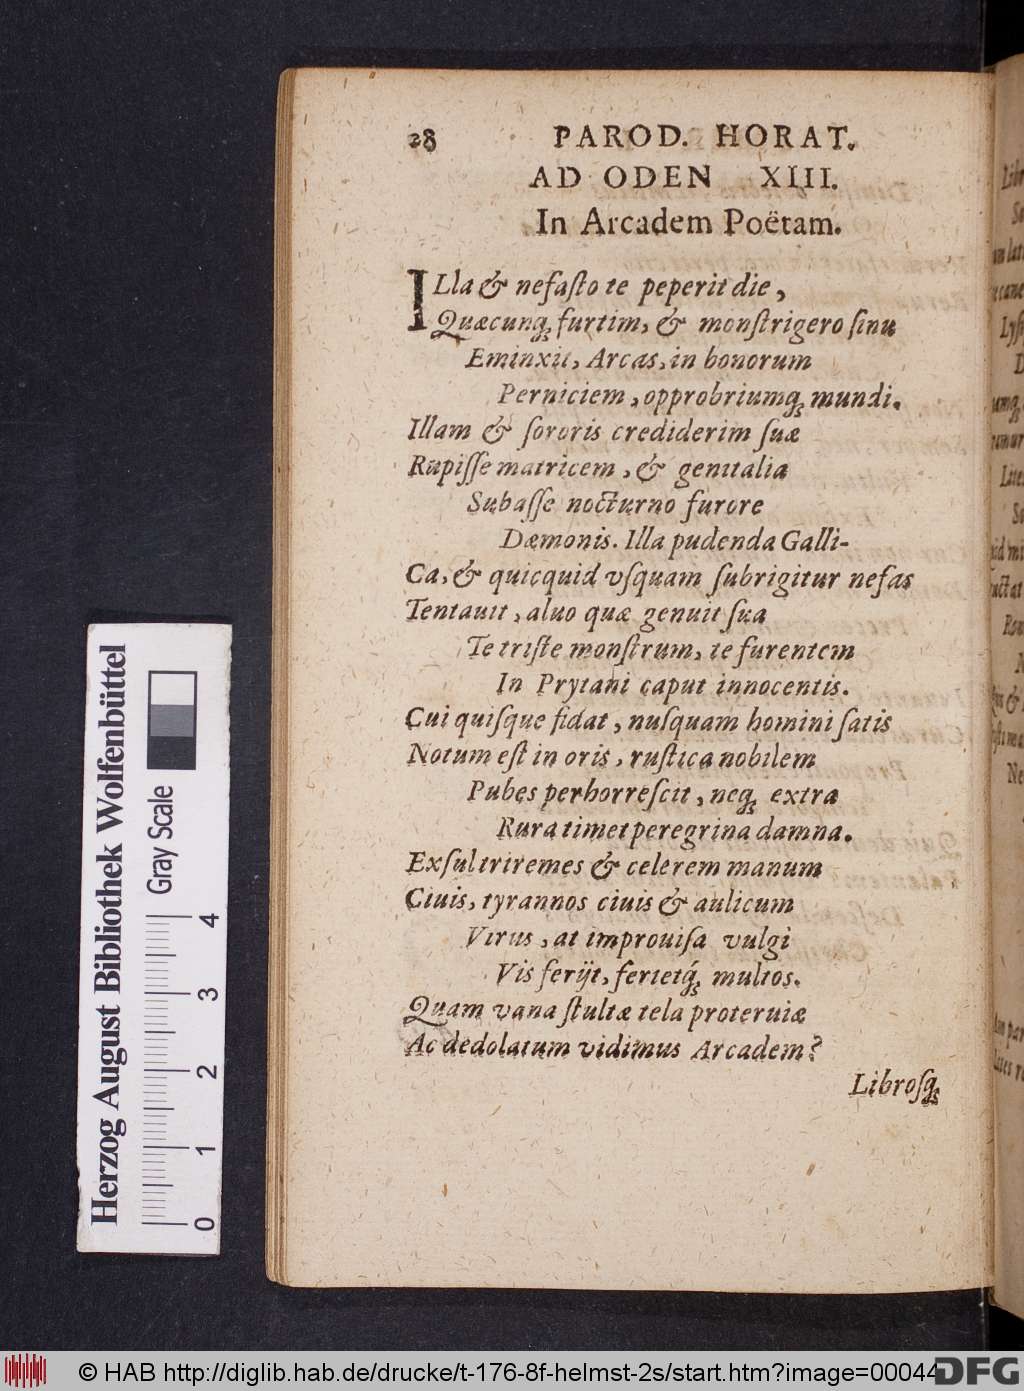 28 PAROD. HORAT.
AD ODEN XIII.
In Arcadem Poëtam.
ILla & nefaſto te peperit die,
Quæcunq; furtim, & monſtrigero ſinu
Eminxit, Arcas, in bonorum
Perniciem, opprobriumq; mundi.
Illam & ſororis crediderim ſuæ
Rupiſſe matricem, & genitalia
Subaſſe nocturno furore
Dæmonis. Illa pudenda Galli-
Ca, & quicquid vſquam ſubrigitur nefas
Tentauit, aluo quæ genuit ſua
Te triſte monſtrum, te furentem
In Prytani caput innocentis.
Cui quiſque fidat, nuſquam homini ſatis
Notum eſt in oris, ruſtica nobilem
Pubes perhorreſcit, neq; extra
Rura timet peregrina damna.
Exſul triremes & celerem manum
Ciuis, tyrannos ciuis & aulicum
Virus, at improuiſa vulgi
Vis ferijt, ferietq́; multos.
Quam vana ſtultæ tela proteruiæ
Ac dedolatum vidimus Arcadem?
Libroſq;
Herzog August Bibliothek Wolfenbüttel
Gray Scale
0 1 2 3 4
© HAB http://diglib.hab.de/drucke/t-176-8f-helmst-2s/start.htm?image=00044
DFG